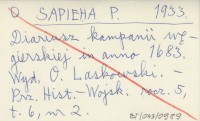 O SAPIEHA P. 1933.
Diariusz kampanii wę-
gierskiej in anno 1683.
Wyd. O. Laskowski. -
Prz. Hist.-Wojsk. rocz. 5,
t. 6, nr 2.